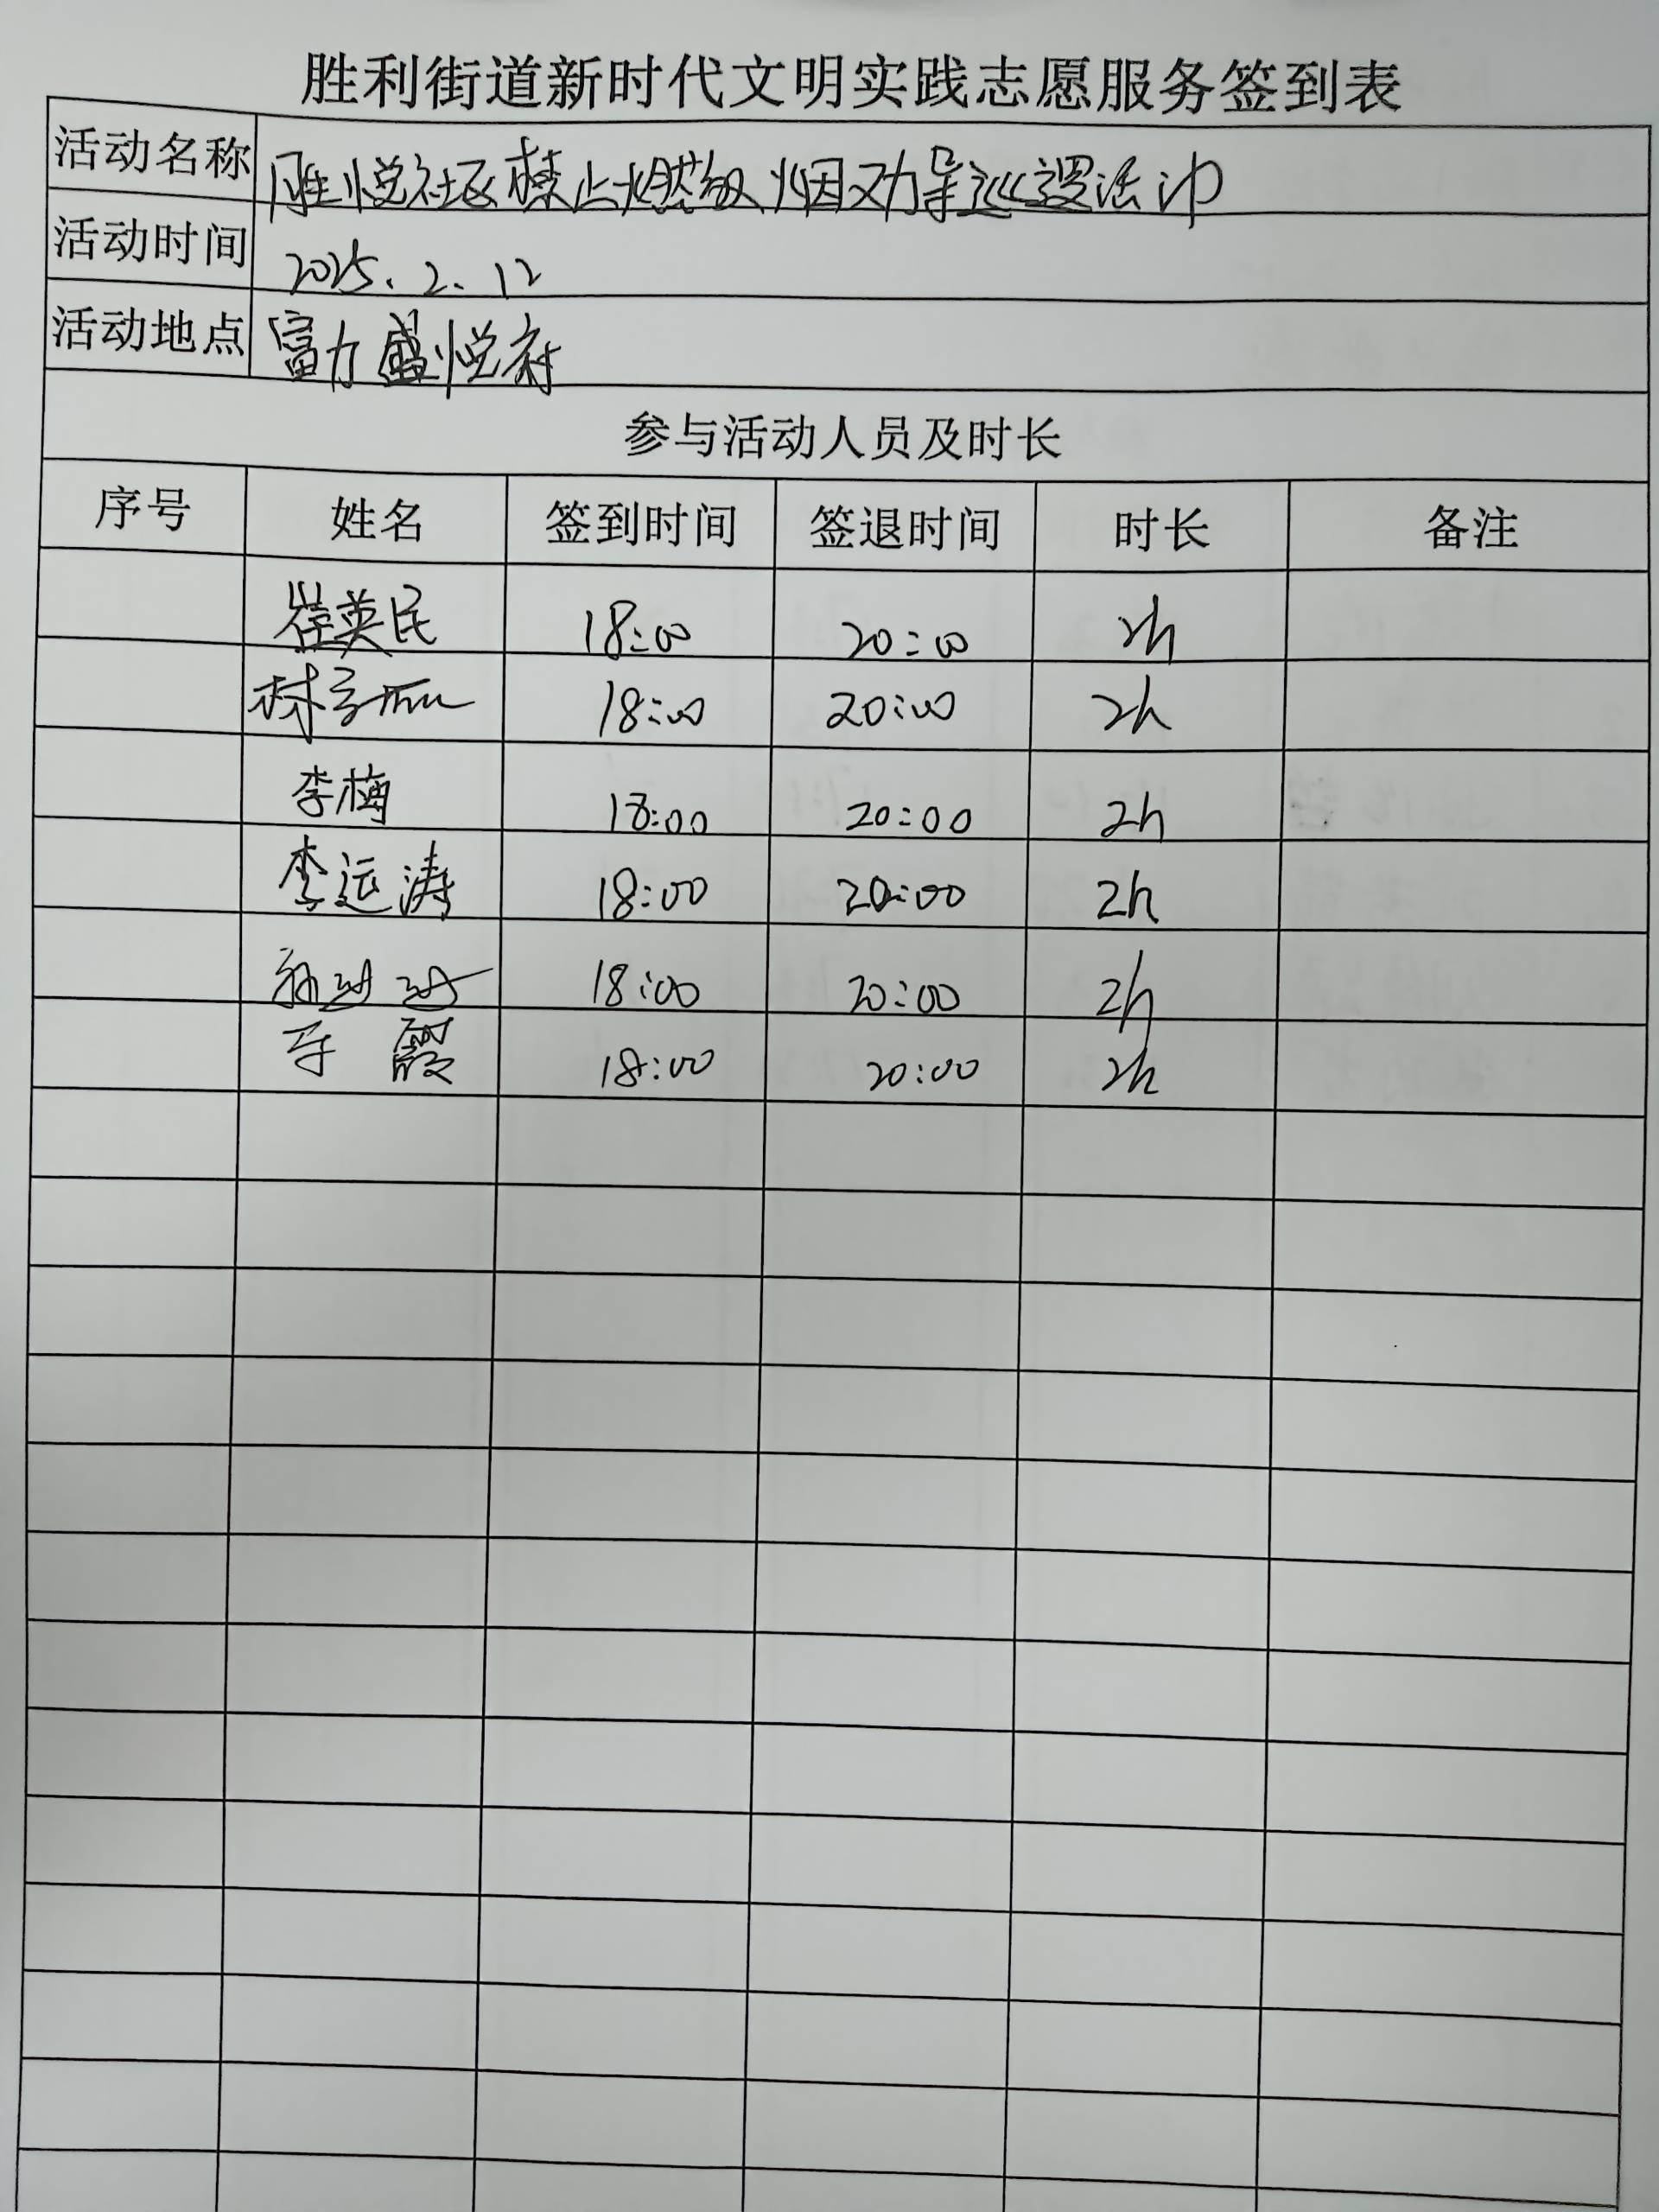 胜利街道新时代文明实践志愿服务签到表
活动名称 胜悦社区禁止燃放烟劝导巡逻活动
活动时间 2025.2.12
活动地点 富力盛悦府
参与活动人员及时长
序号 姓名 签到时间 签退时间 时长 备注
崔英民 18:00 20:00 2h
林 18:00 20:00 2h
李梅 18:00 20:00 2h
李运涛 18:00 20:00 2h
18:00 20:00 2h
霞 18:00 20:00 2h